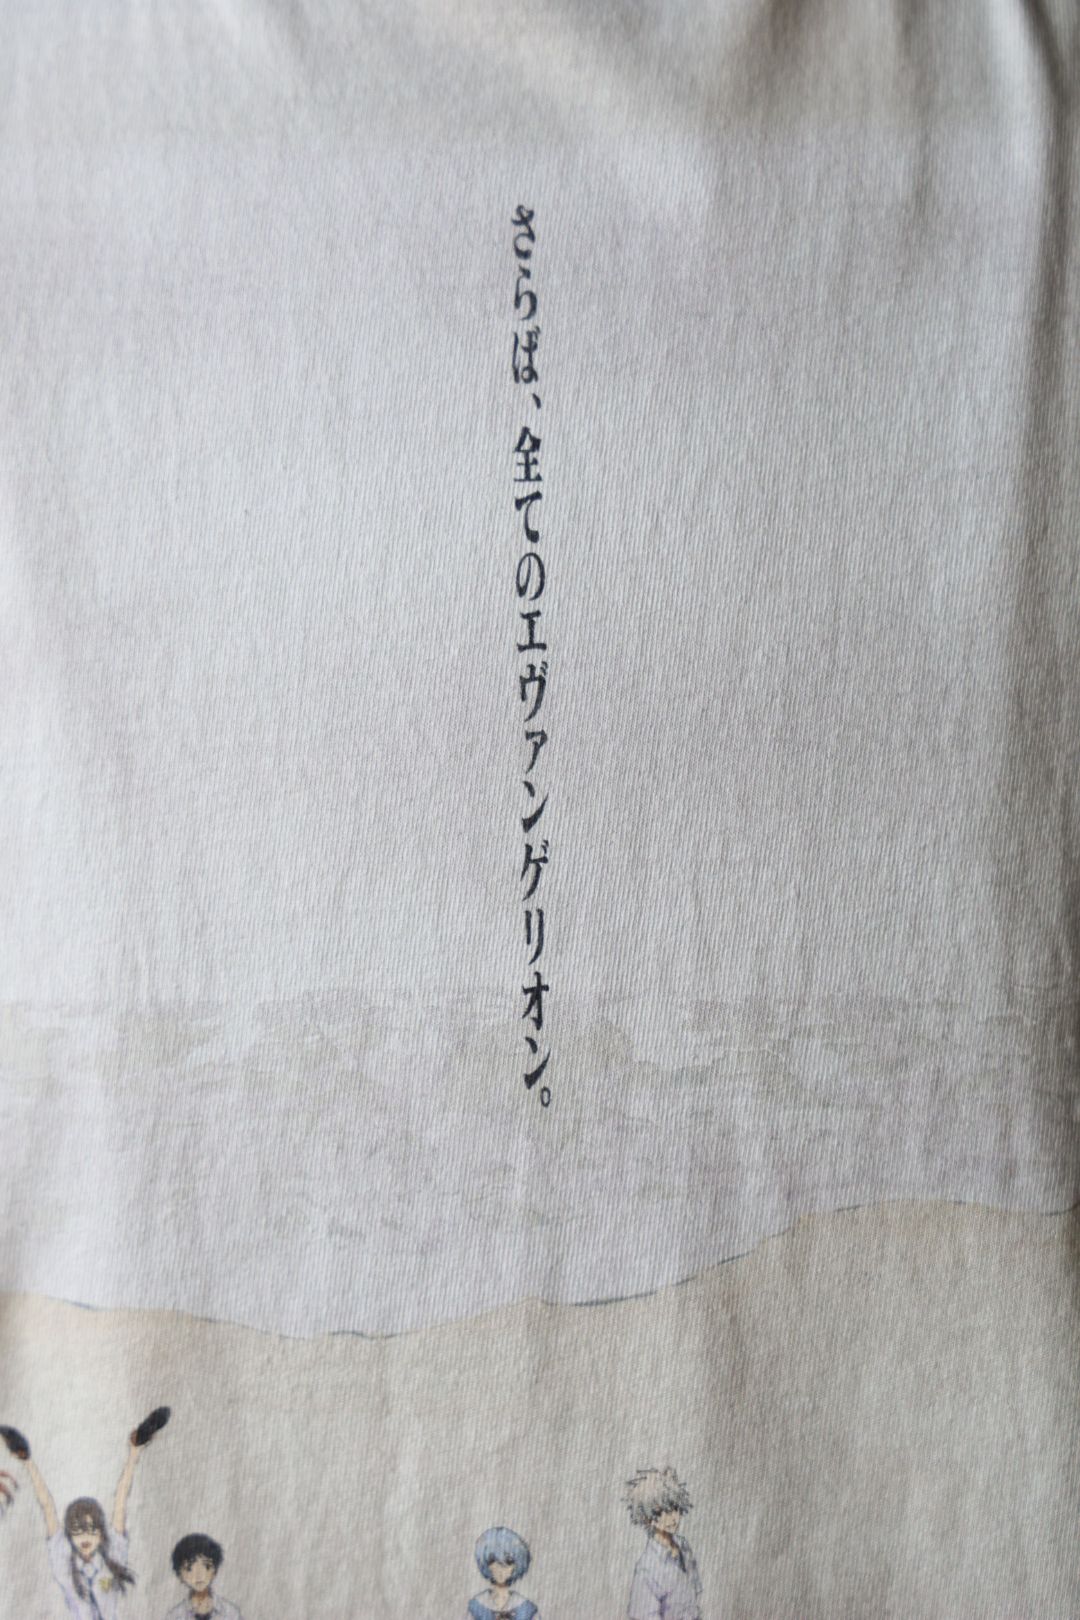 さらば、全てのエヴァンゲリオン。